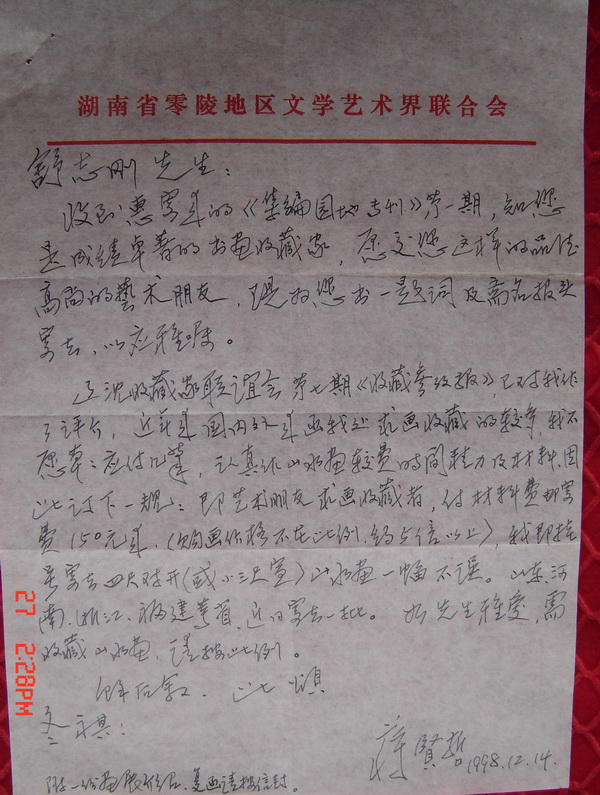 湖南省零陵地区文学艺术界联合会
舒志刚先生：
收到惠寄来的《集编园地专刊》第一期，知您
是成绩卓著的书画收藏家，愿交您这样的品德
高尚的藝术朋友，现为您书一题词及斋名报头
寄去，以应雅嘱。
收藏家联谊会第七期《收藏参考报》，已对我作
了评介，近年来国内外来函我处求画收藏的较多，我不
愿草草应付几笔，认真作山水画较费时间精力及材料，因
此订下一规：即艺术朋友求画收藏者，付材料费邮寄
费150元来，（购画价格不在此例，约5倍以上），我即挂
号寄去四尺对开（或小三尺宣）山水画一幅不误。山东、河
南、浙江、福建等省，近日寄去一批。如先生雅爱，需
收藏山水画，请按此例。
馀后叙，此颂
冬祺！
賢哲
1998.12.14.
附一份画展，复函请按信封。
27 2:28PM